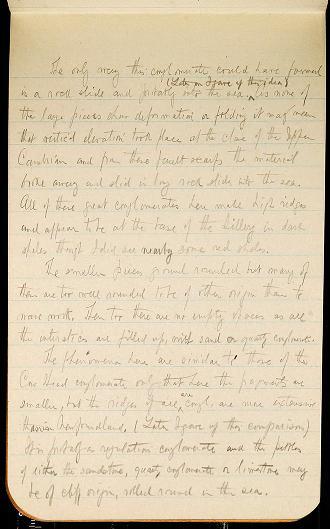 The only way this conglomerate could have formed
(Later on I gave up this idea)
is a rock slide and probably into the sea. As none of
the large pieces show deformation or folding it may mean
that vertical elevation took place at the close of the Upper
Cambrian and from these fault scarps the material
broke away and slid in big rock slides into the sea.
All of these great conglomerates here make high ridges
and appear to be at the base of the Sillery in dark
shales though I did see nearby some red shales.
The smaller pieces ground rounded but many of
them are too well rounded to be of other origin than to
wave work. Then too there are no empty spaces as all
the interstices are filled up with sand or quartz conglomerate.
The phenomena here are similar to those of the
Cow Head conglomerate only that here the fragments are
smaller, but the ridges of congl. are more extensive
than in Newfoundland. (Later I gave up this comparison)
It is probably a conglomerate and the pebbles
of either the sandstone, quartz, conglomerate or limestone may
be of cliff origin, rolled round in the sea.